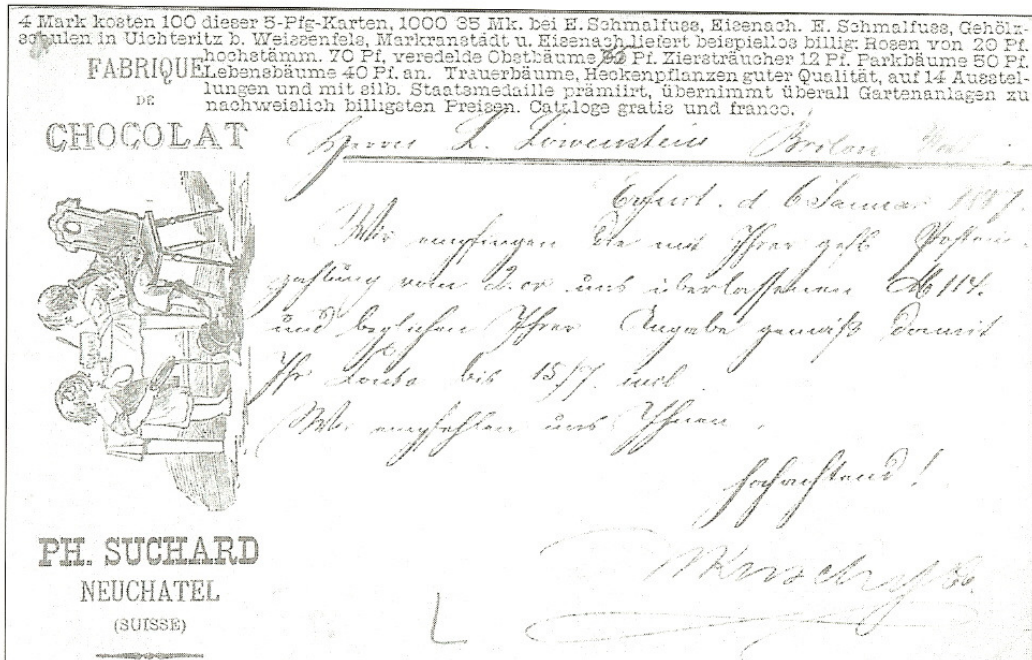 4 Mark kosten 100 dieser 5-Pfg-Karten, 1000 35 Mk. bei E. Schmalfuss, Eisenach. E. Schmalfuss, Gehölz-
schulen in Uichteritz b. Weissenfels, Markranstädt u. Eisenach liefert beispiellos billig: Rosen von 20 Pf.
hochstämm. 70 Pf, veredelde Obstbäume Pf. Ziersträucher 12 Pf. Parkbäume 50 Pf.
Lebensbäume 40 Pf. an. Trauerbäume, Heckenpflanzen guter Qualität, auf 14 Ausstel-
lungen und mit silb. Staatsmedaille prämiirt, übernimmt überall Gartenanlagen zu
nachweislich billigsten Preisen. Cataloge gratis und franco.
FABRIQUE
DE
CHOCOLAT
PH. SUCHARD
NEUCHATEL
(SUISSE)
Herrn L. Löwenstein Brilon
Erfurt. d 6 Januar
Wir empfingen die mit Ihrer gefl. Postein-
zahlung vom 2. cr. uns überlassenen M 114.
und beglichen Ihrer Angabe gemäß damit
Ihr Konto bis 15/7. incl.
Wir empfehlen uns Ihnen
hochachtend!